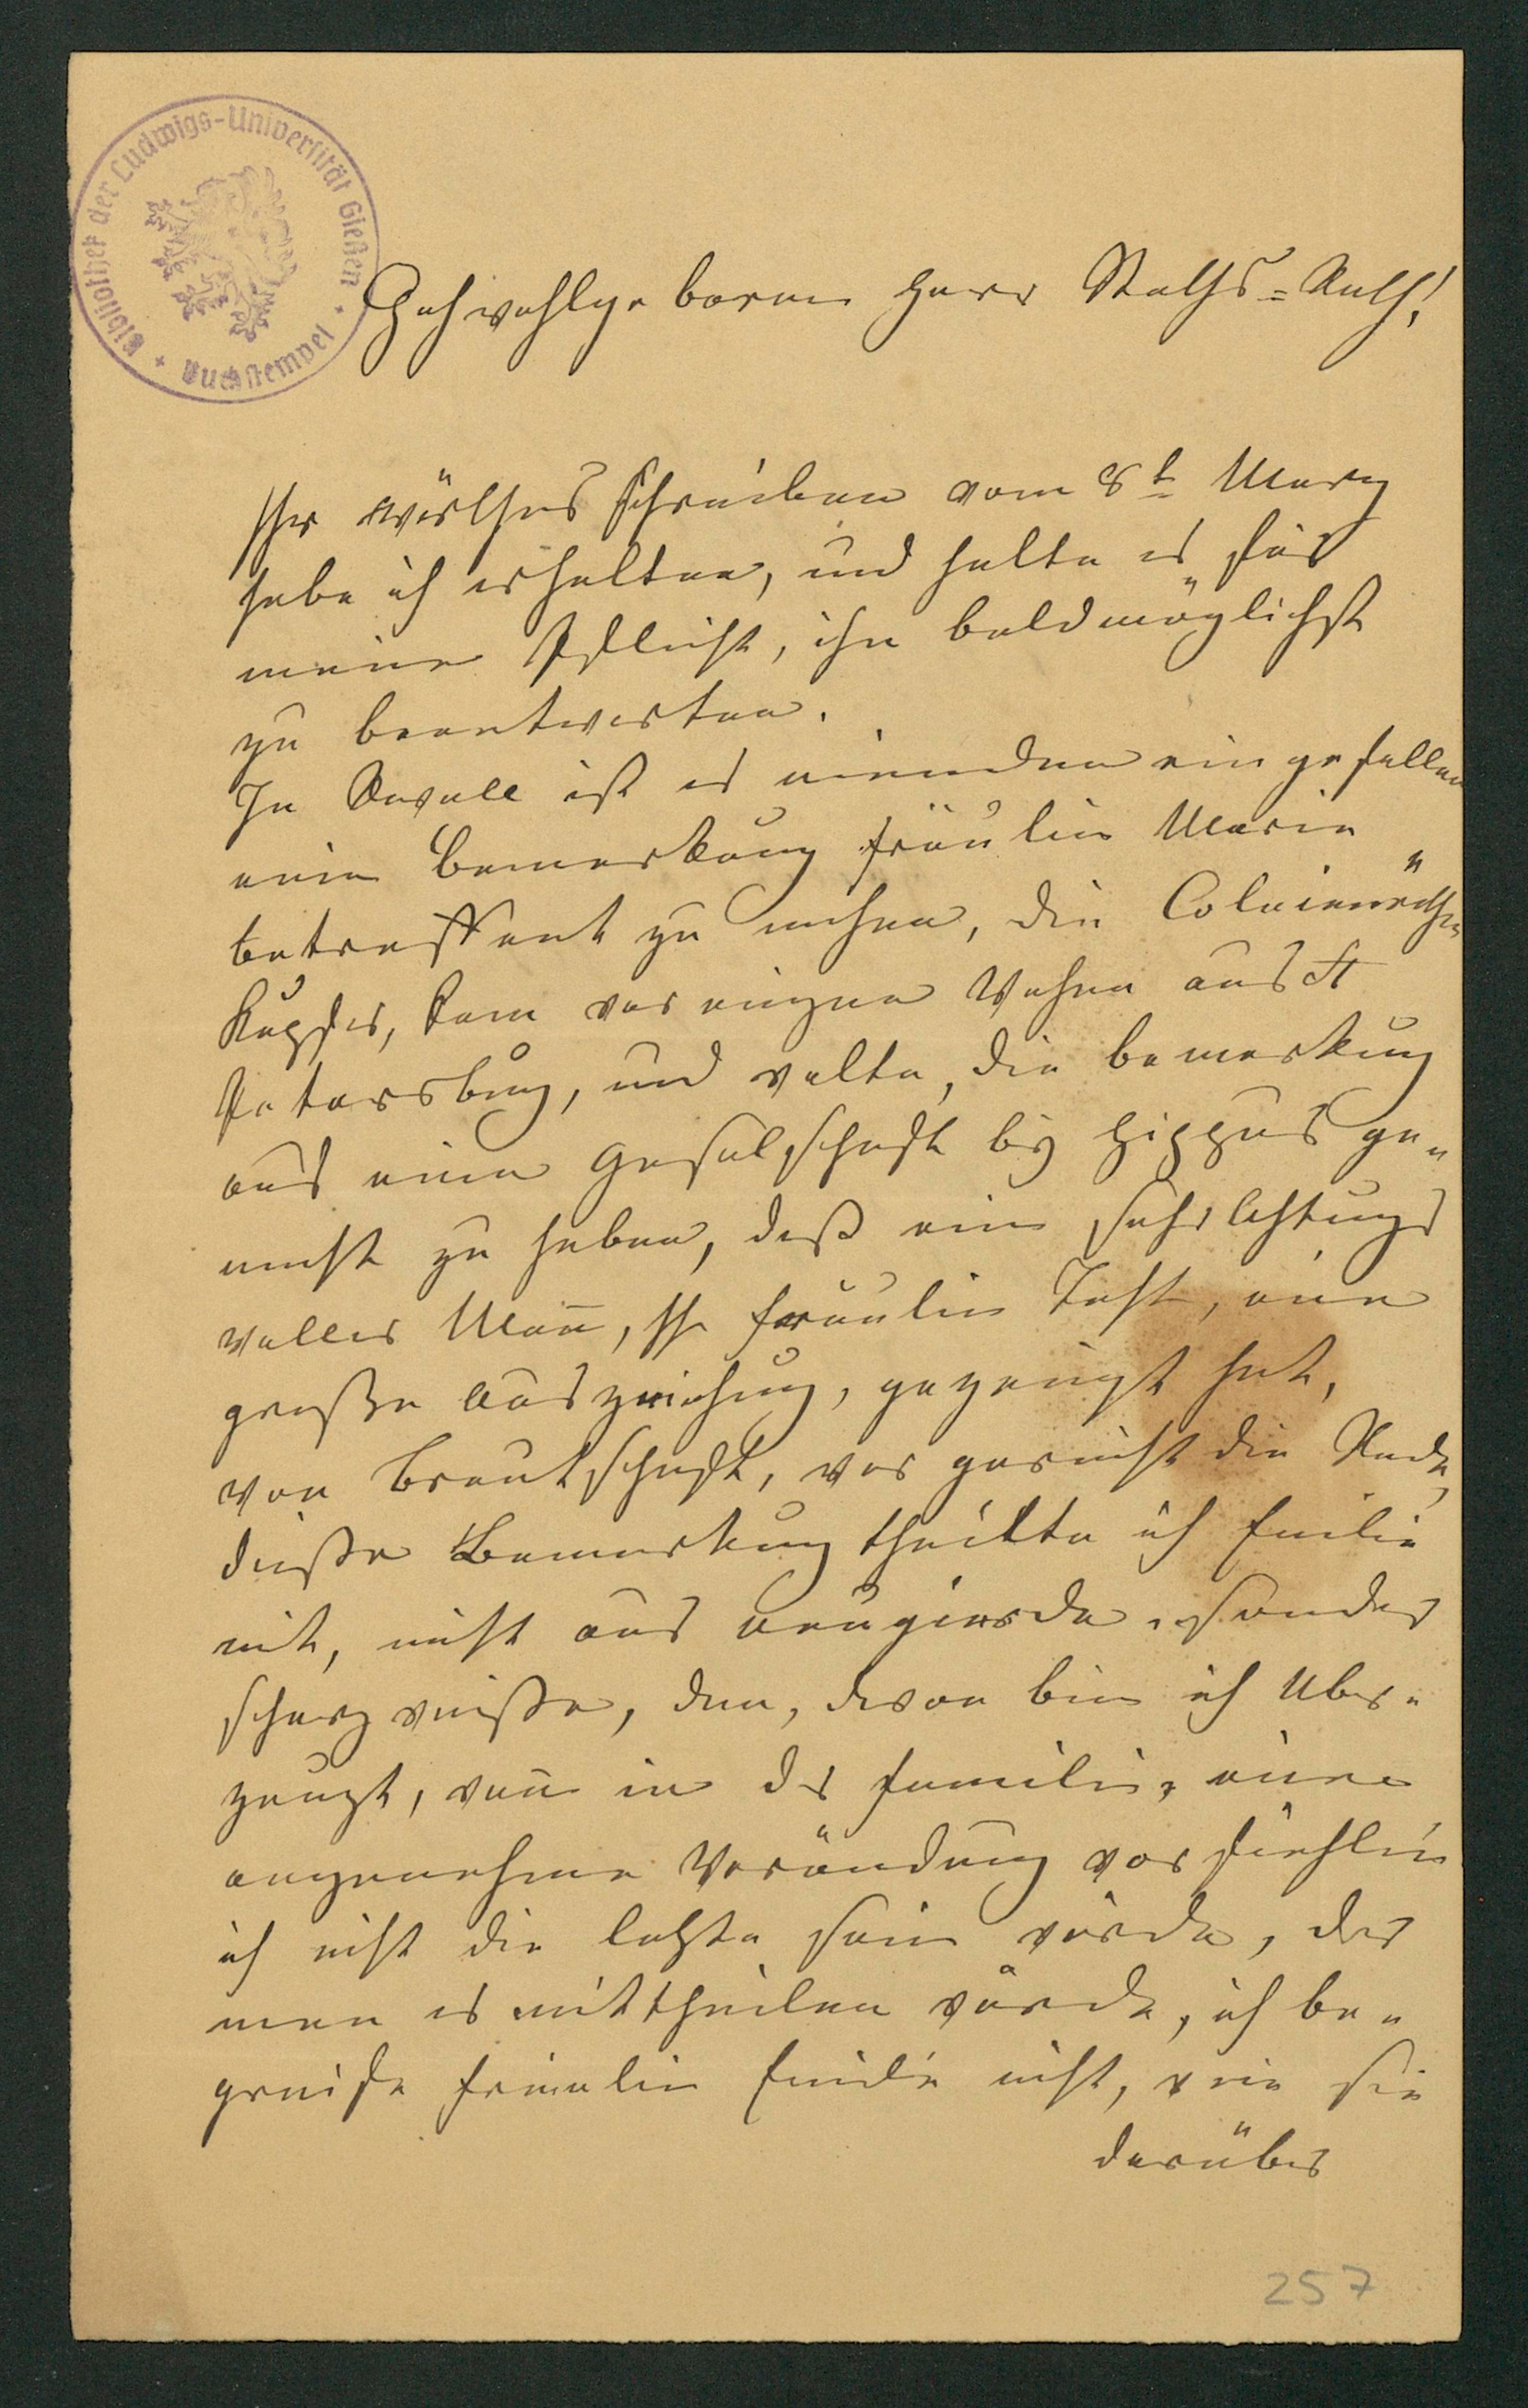 Bibliothek der Ludwigs-Universität Gießen + Buchstempel +
Hochwohlgeborner Herr Staths=Rath!
Ihr wörthes Schreiben vom 8t März
habe ich erhalten, und halte es für
meine Pflicht, ihn baldmöglichst
zu beantworten.
In Revall ist es niemden ein gefallen
eine Bemerkung fräulin Marie
betreffent zu machen, die
Kupfer, kam vor einigen Wochen aus St
Petersburg, und wollte, die bemerkung
aus eine Geselschaft by Hippius ge=
macht zu haben, daß ein sehr Achtungs
voller Man̄, Ihr fräulin Tochter, eine
große Auszeichung, gezeugt hat,
von Brautschaft, war garnicht die Rede,
dieße Bemerkung theilte ich Emilie
mit, nicht aus neugierde, sonder
scherz weiße, den, davon bin ich Uber=
zeugt, wen̄ in der familie, eine
angenehme Verändung vor fiehle
ich nicht die letzte sein würde, der
man es mittheilen würde, ich be=
greife freiulin Emilie nicht, wie sie
darüber
257